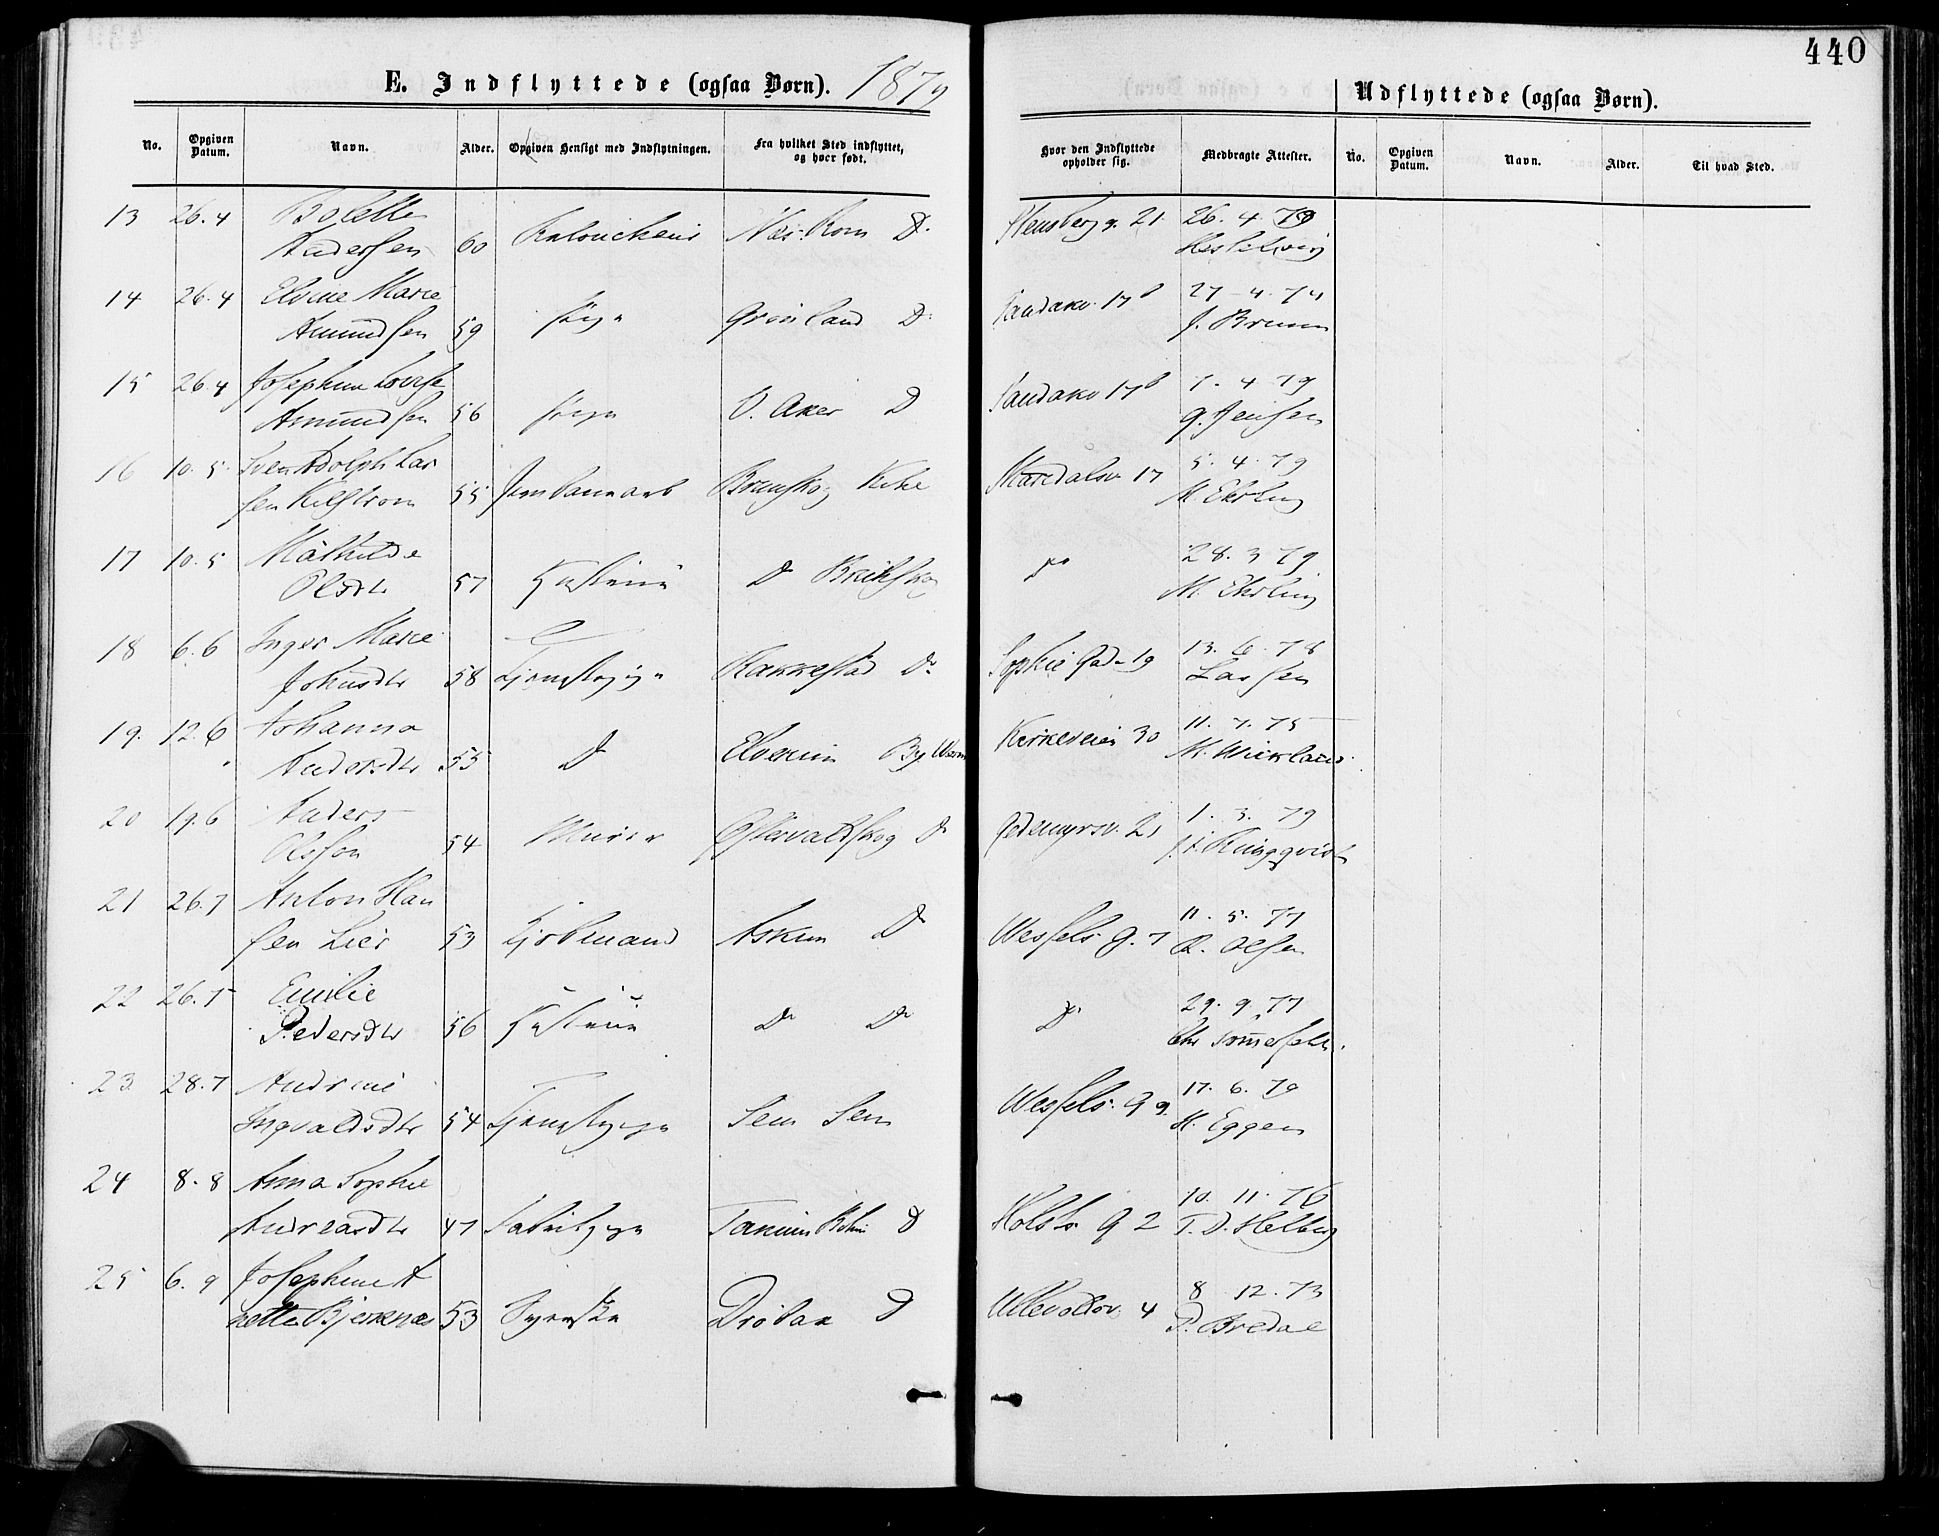 440
E. Indflyttede (ogsaa Børn). 1879
Udflyttede (ogsaa Børn).
No. Opgiven Datum. Navn. Alder. Opgiven Hensigt med Indflytningen. Fra hvilket Sted indflyttet, og hvor født. Hvor den Indflyttede opholder sig. Medbragte Attester. No. Opgiven Datum. Navn. Alder. Til hvad Sted.
13 26.4 Bolette Stensberg g. 21 26. 4. 79
Andersen 60 Nes. Rom D.
14 26.4 Elvine Marie Sandakv. 17b 27-4.74
Amundsen 59 Grönland D. J. Bruun
15 26.4 Josephine Lovise Sandakv 17b 7. 4 79
Amundsen 56 V. Aker D G. Jensen
16 10.5 Sven Adolph Lar Maridalsv. 17 5. 4. 79
sen Kilstrom 55 Jernbanearb Brunskog M. Ehrling
17 10.5 Mathilde Do 28. 3 79
Olsdtr 57 Hustru D Brunskog M. Ehrling
18 6.6 Inger Marie Sophie Gade 19 13. 6. 78
Johnsdtr 58 Tjenestepige Rakkestad Do Larsen
19. 12.6 Johanna Kirkeveien 30 11. 7. 75
Andersdtr 55 D Elverum By Werm
20 19.6 Anders Gedemyrsv. 21 1. 3. 79
Olsson 54 Murer Östervaldskog D Ringqvist
21 26.7 Anton Han Wessels g. 7 11. 5. 77
sen Lier 53 Kjøbmand Askim D R. Olsen
22 26.7 Emilie D 29. 9. 77
Pedersdtr 56 Hustru D D Chr Sommerfeldt.
23 28.7 Andrine Wessels. G 9. 17. 6. 79
Ingvaldsdtr 54 Tjenestepige Sem Sem H. Eggen
24 8.8 Anna Sophie Holsts. G 2 10. 11. 76
Andreasdtr 47 Fabrikpige Tanum D T. D. Helberg
25 6.9 Josephine A Ullevoldsv. 4 8 12. 73
nette Bjerknes 53 Syerske Dröbak D P. Bredal